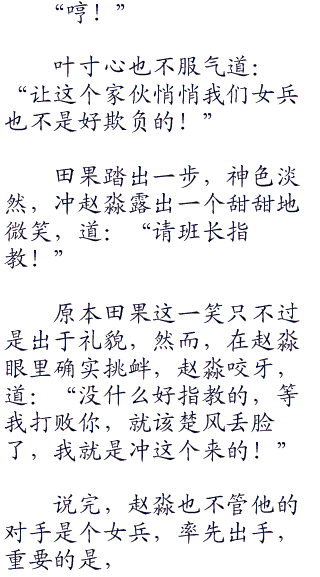 “哼！”
叶寸心也不服气道：
“让这个家伙悄悄我们女兵
也不是好欺负的！”
田果踏出一步，神色淡
然，冲赵淼露出一个甜甜地
微笑，道：“请班长指
教！”
原本田果这一笑只不过
是出于礼貌，然而，在赵淼
眼里确实挑衅，赵淼咬牙，
道：“没什么好指教的，等
我打败你，就该楚风丢脸
了，我就是冲这个来的！”
说完，赵淼也不管他的
对手是个女兵，率先出手，
重要的是，